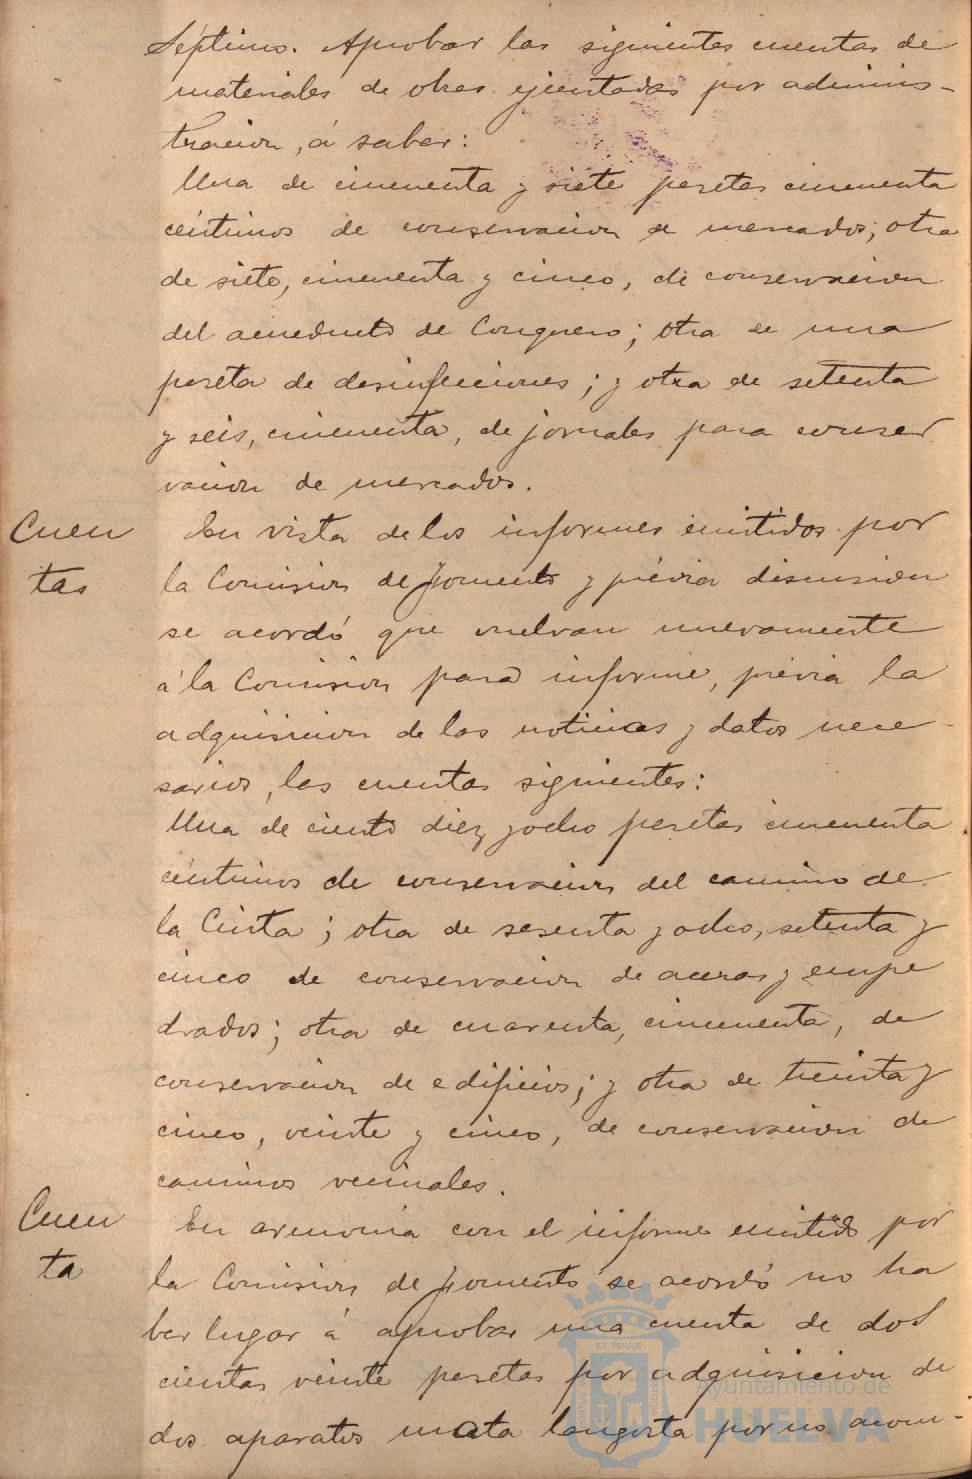 Séptimo. Aprobar las siguientes cuentas de
materiales de obras ejecutadas por adminis-
tracion, á saber:
Una de cincuenta y siete pesetas cincuenta
céntimos de conservacion de mercados; otra
de siete, cincuenta y cinco, de conservacion
del acueducto de Conquero; otra de una
peseta de desinfecciones; y otra de setenta
y seis, cincuenta, de jornales para conser
vacion de mercados.
Cuen
tas
En vista de los informes emitidos por
la Comision de fomento y prévia discusion
se acordó que vuelvan nuevamente
á la Comision para informe, prévia la
adquisicion de las noticias y datos nece-
sarios, las cuentas siguientes:
Una de ciento diez y ocho pesetas cincuenta
céntimos de conservacion del camino de
la Cinta; otra de sesenta y ocho, setenta y
cinco de conservacion de aceras y empe
drados; otra de cuarenta, cincuenta, de
conservacion de edificios; y otra de treinta y
cinco, veinte y cinco, de conservacion de
caminos vecinales.
Cuen
ta
En armonia con el informe emitido por
la Comision de fomento se acordó no ha
ber lugar á aprobar una cuenta de dos
cientas veinte pesetas por adquisicion de
dos aparatos mata langosta por no acom-
Ayuntamiento de
HUELVA